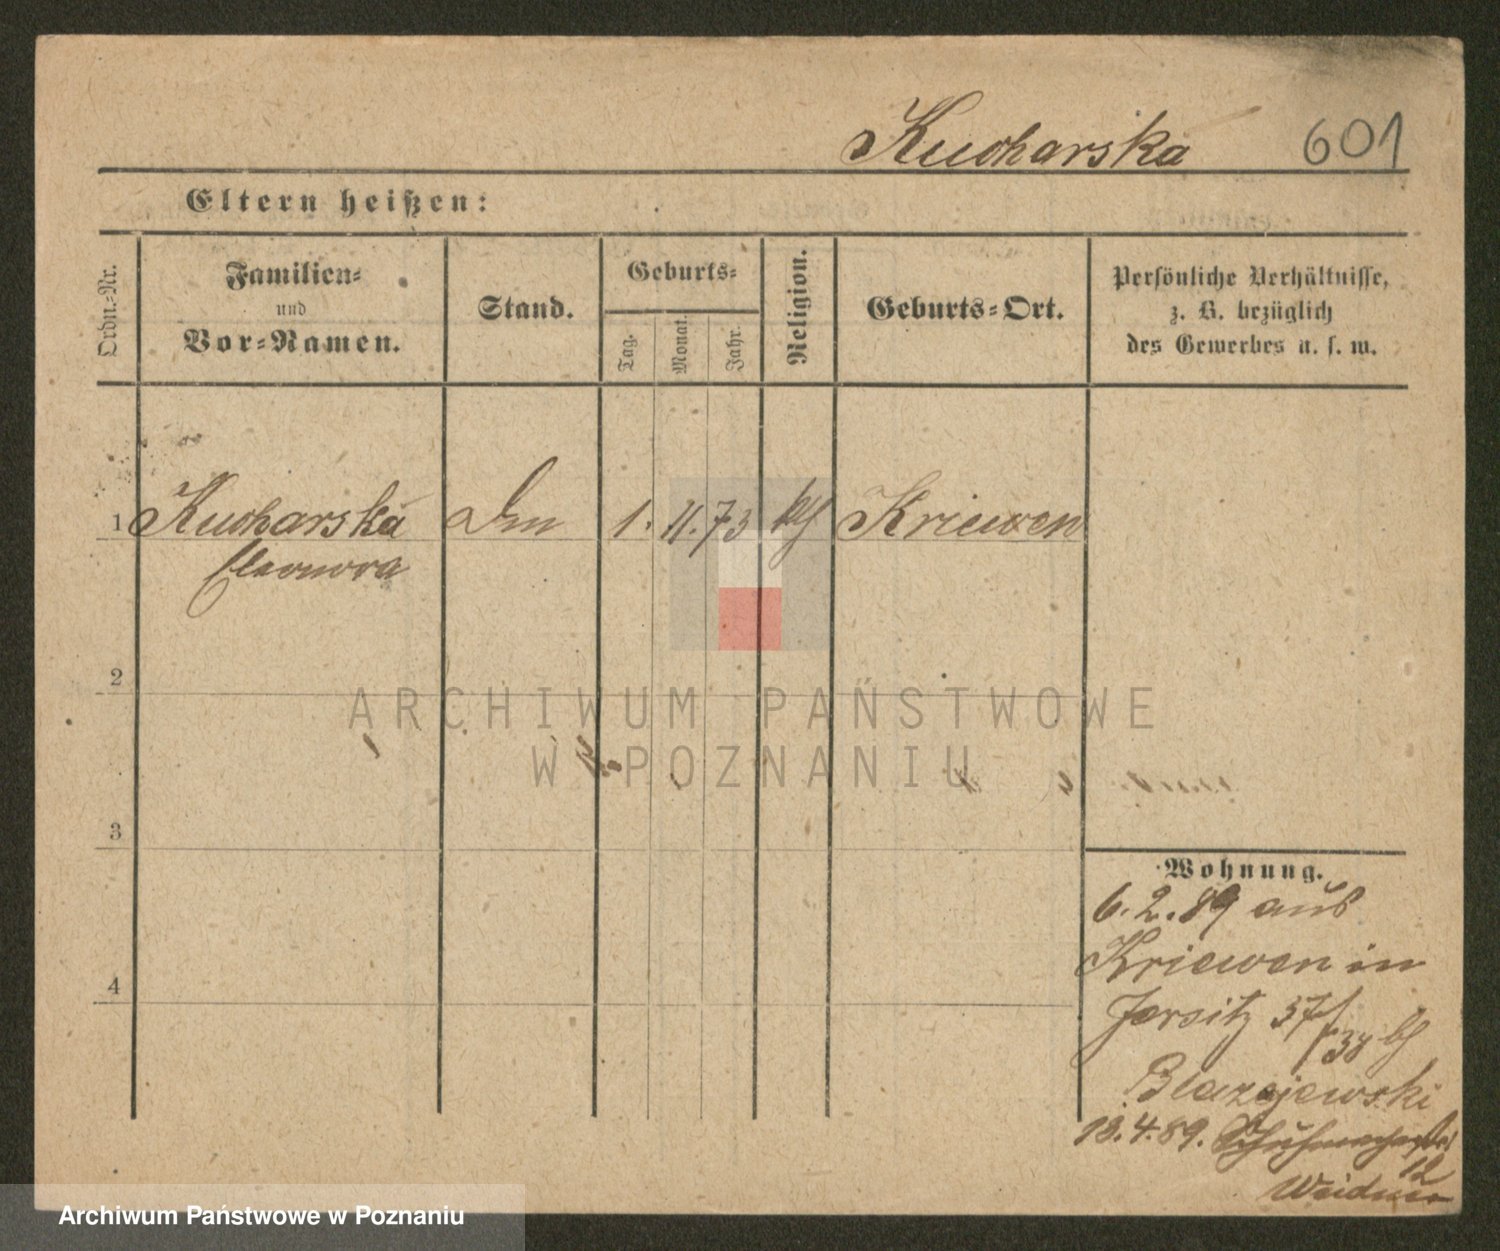 Kucharska 601
Eltern heißen:
Ordn.-Nr.
Familien-
und
Vor-Namen.
Stand.
Geburts-
Tag.
Monat.
Jahr.
Religion.
Geburts-Ort.
Persönliche Verhältnisse,
z. B. bezüglich
des Gewerbes u. s. w.
1 Kucharska 1. 11. 73 kth Kriewen
Eleonora
2
ARCHIWUM PAŃSTWOWE
W POZNANIU
3
Wohnung.
6.2.89 aus
Kriewen in
4
Jersitz 37/
38 bei
Blazejewski
18.4.89. Schuhmacherstr
12
Archiwum Państwowe w Poznaniu